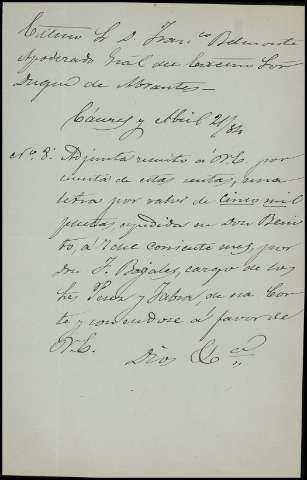 Exmo Sr D. Fran.co Belmonte
Apoderado Gral del Excmo Sor
Duque de Abrantes—
Cáceres y Abril 2/84
No. 8. Adjunta remito á V.E. por
cuenta de estas rentas, una
letra por valor de cinco mil
pesetas, espedida en Don Beni
to, á 1 del corriente mes, por
don J. cargo de los
Sres y Fabra, de esa Cor
te y á favor de
V.E.
Dios &a